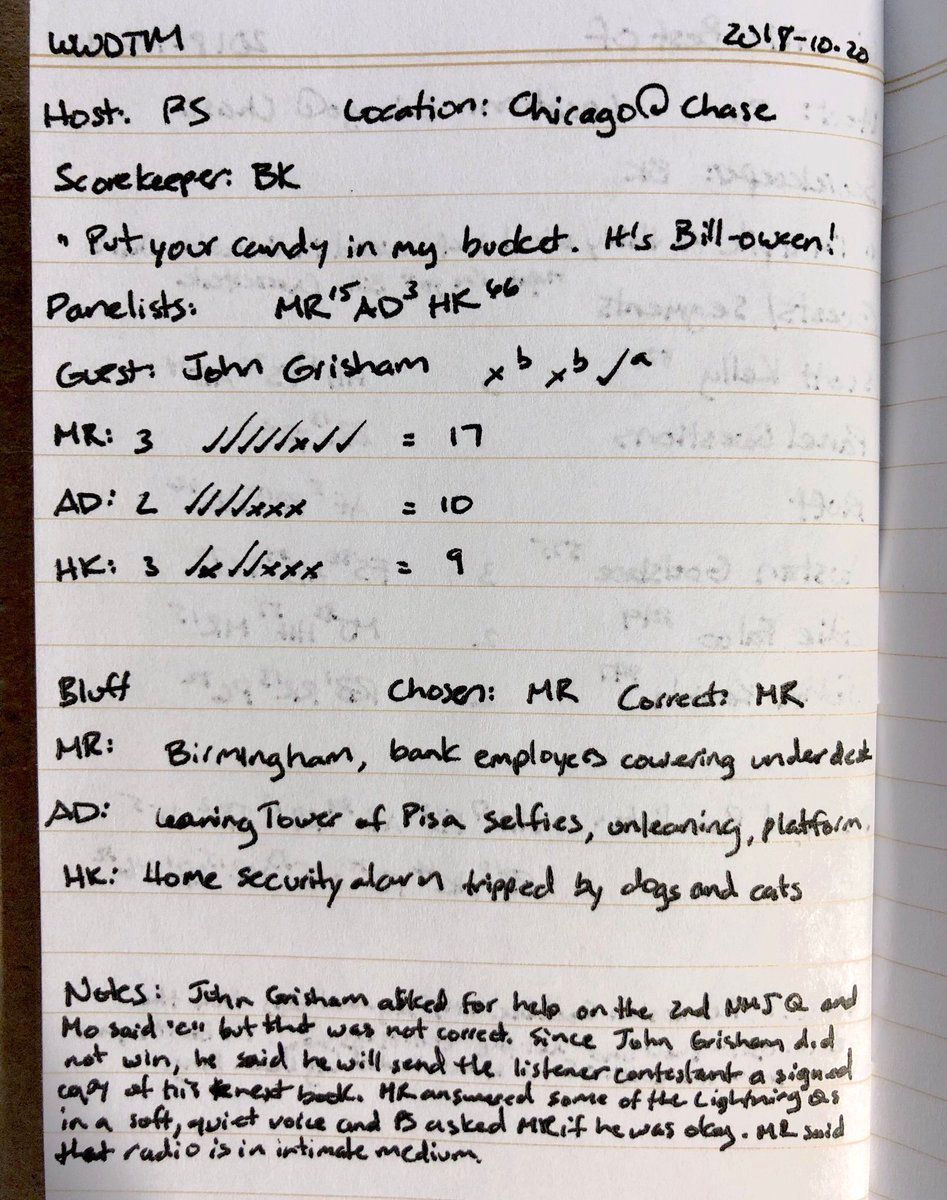 WWDTM 2018-10-20
Host: PS Location: Chicago@Chase
Scorekeeper: BK
"Put your candy in my bucket. It's Bill-oween!
Panelists: MR¹⁵ AD³ HK⁶⁶
Guest: John Grisham x ᵇ x ᵇ ✓ ᵃ
MR: 3 ✓✓✓✓✓x✓✓ = 17
AD: 2 ✓✓✓✓xxx = 10
HK: 3 ✓x✓✓xxx = 9
Bluff Chosen: MR Correct: MR
MR: Birmingham, bank employees cowering under desk
AD: Leaning Tower of Pisa selfies, unleaning, platform
HK: Home security alarm tripped by dogs and cats
Notes: John Grisham asked for help on the 2nd NMJ Q and
Mo said "c" but that was not correct. Since John Grisham did
not win, he said he will send the listener contestant a signed
copy of his book. MR answered some of the Lightning Qs
in a soft, quiet voice and PS asked MR if he was okay. MR said
that radio is in intimate medium.